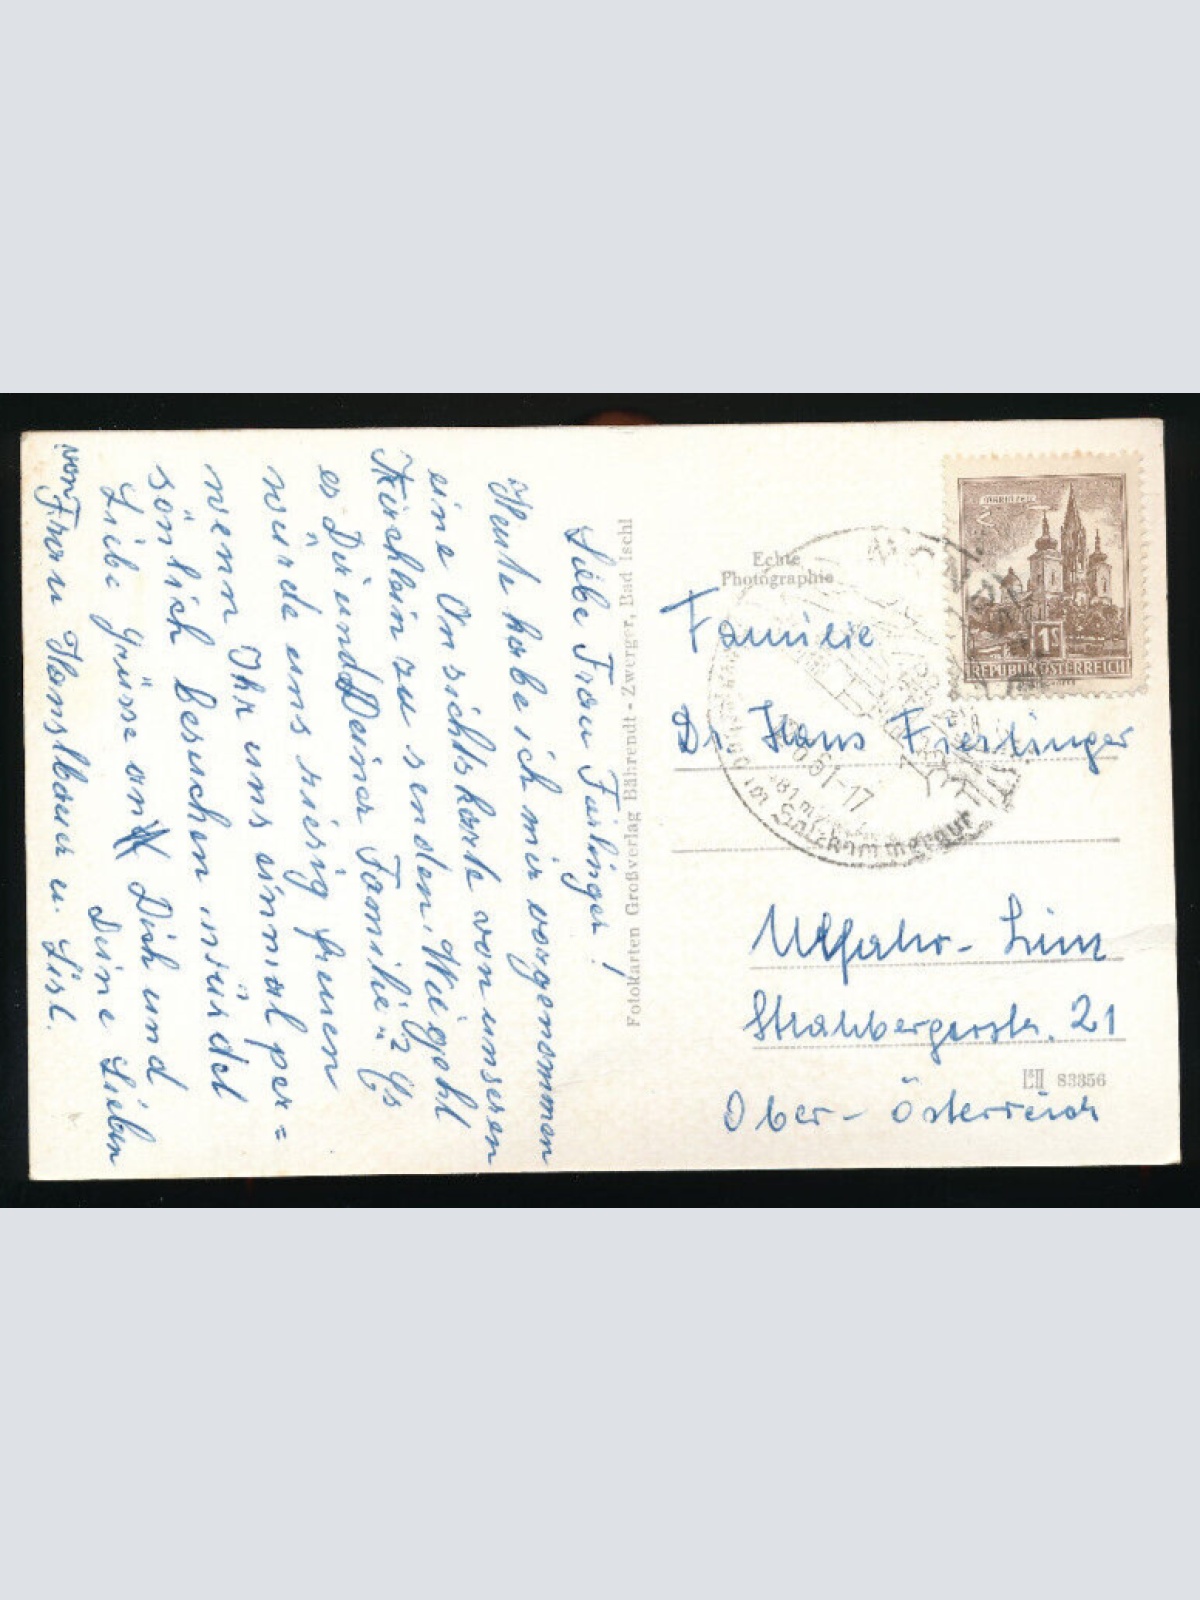 Liebe Frau Firlinger!
Heute habe ich mir vorgenommen
eine Ansichtskarte von unseren
Kirchlein zu senden. Wie geht
es Dir und Deiner Familie? Es
würde uns riesig freuen
wenn Ihr uns einmal per=
sönlich besuchen würdet
Liebe Grüsse an Dich und
Deine Lieben
von Frau Hanslbauer u. Lisl.
Fotokarten Großverlag Bährendt - Zwerger, Bad Ischl
Echte
Photographie
MARIAZELL
1S
REPUBLIK ÖSTERREICH
61-17
im Salzkammergut
Familie
Dr. Hans Fierlinger
Urfahr - Linz
Strahbergerstr. 21
Ober - Österreich
83356